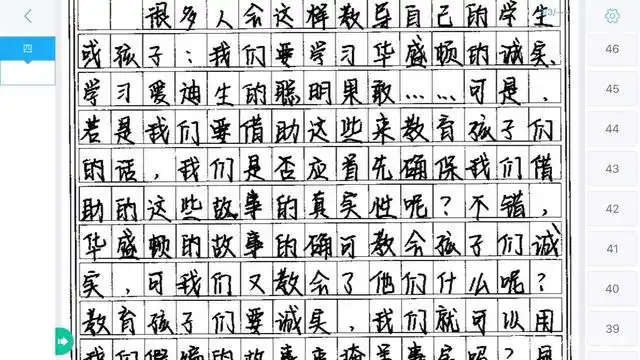 3/--
四
很多人会这样教导自己的学生
或孩子：我们要学习华盛顿的诚实、
学习爱迪生的聪明果敢……可是，
若是我们要借助这些来教育孩子们
的话，我们是否应首先确保我们借
助的这些故事的真实性呢？不错，
华盛顿的故事的确可教会孩子们诚
实，可我们又教会了他们什么呢？
教育孩子们要诚实，我们就可以用
我们假编的故事来掩盖事实吗？用
46
45
44
43
42
41
40
39